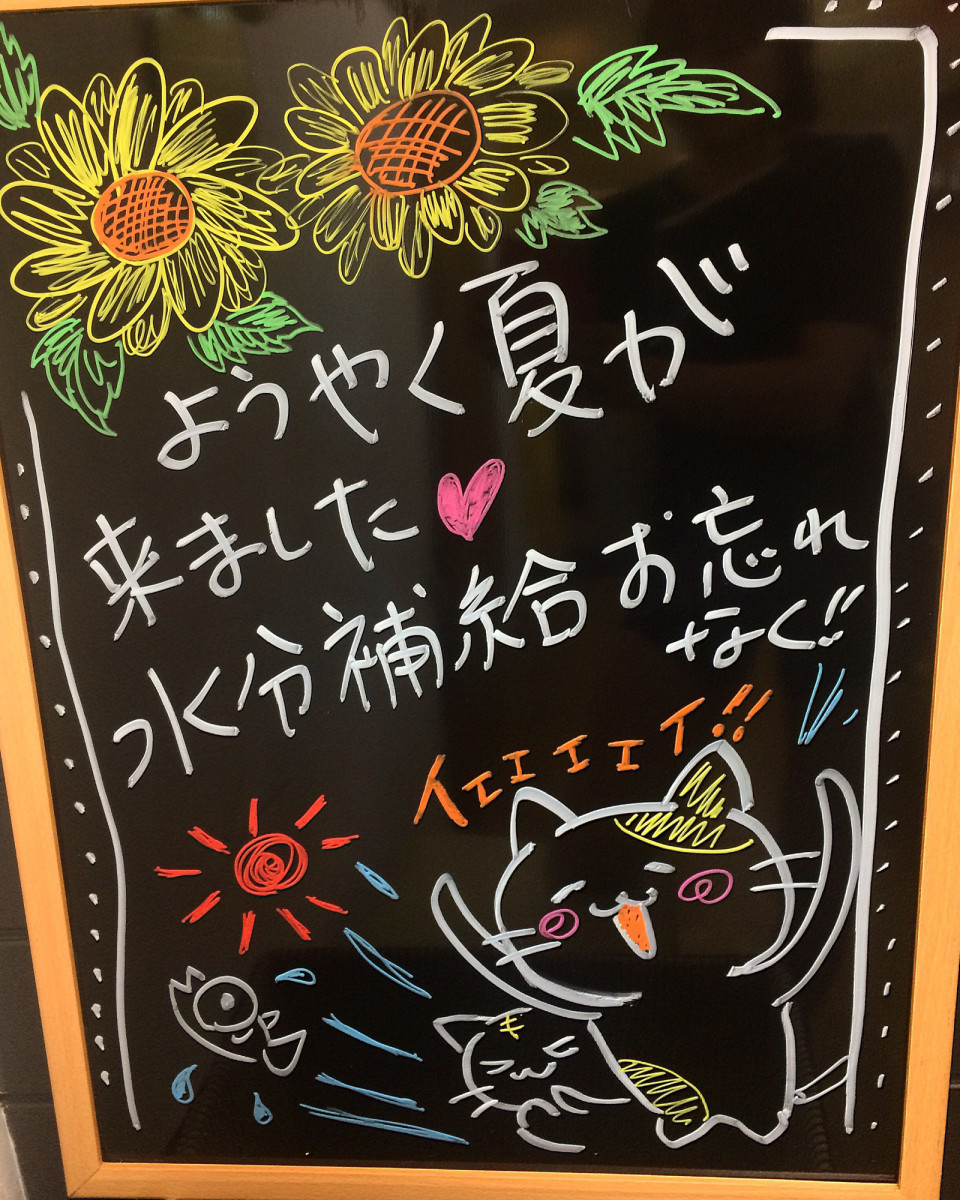 ようやく夏が
来ました♥
水分補給お忘れ
なく!!
イエエエエイ!!